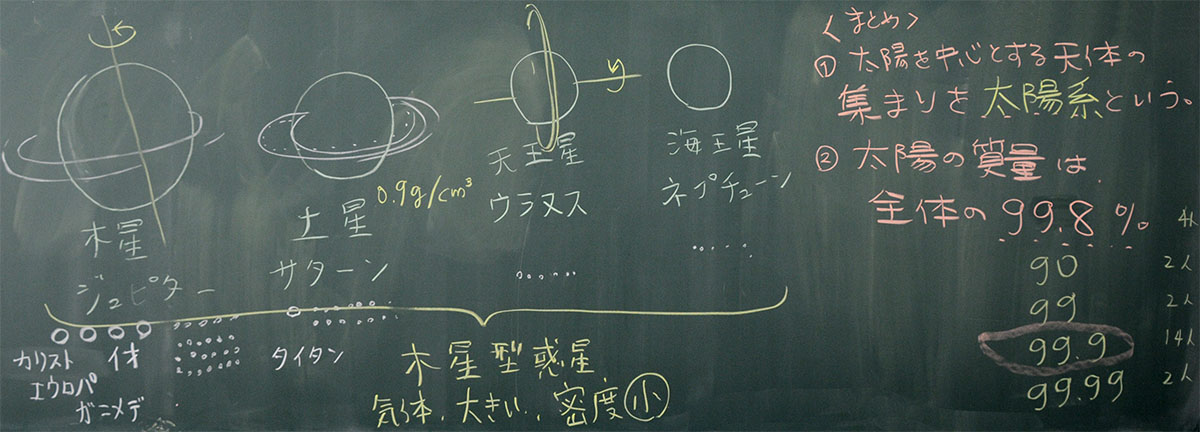 木星
ジュピター
カリスト イオ
エウロパ
ガニメデ
土星
0.9g/cm³
サターン
タイタン
天王星
ウラヌス
海王星
ネプチューン
木星型惑星
気体、大きい、密度小
〈まとめ〉
① 太陽を中心とする天体の
集まりを太陽系という。
② 太陽の質量は
全体の99.8%
4人
90 2人
99 2人
99.9 14人
99.99 2人